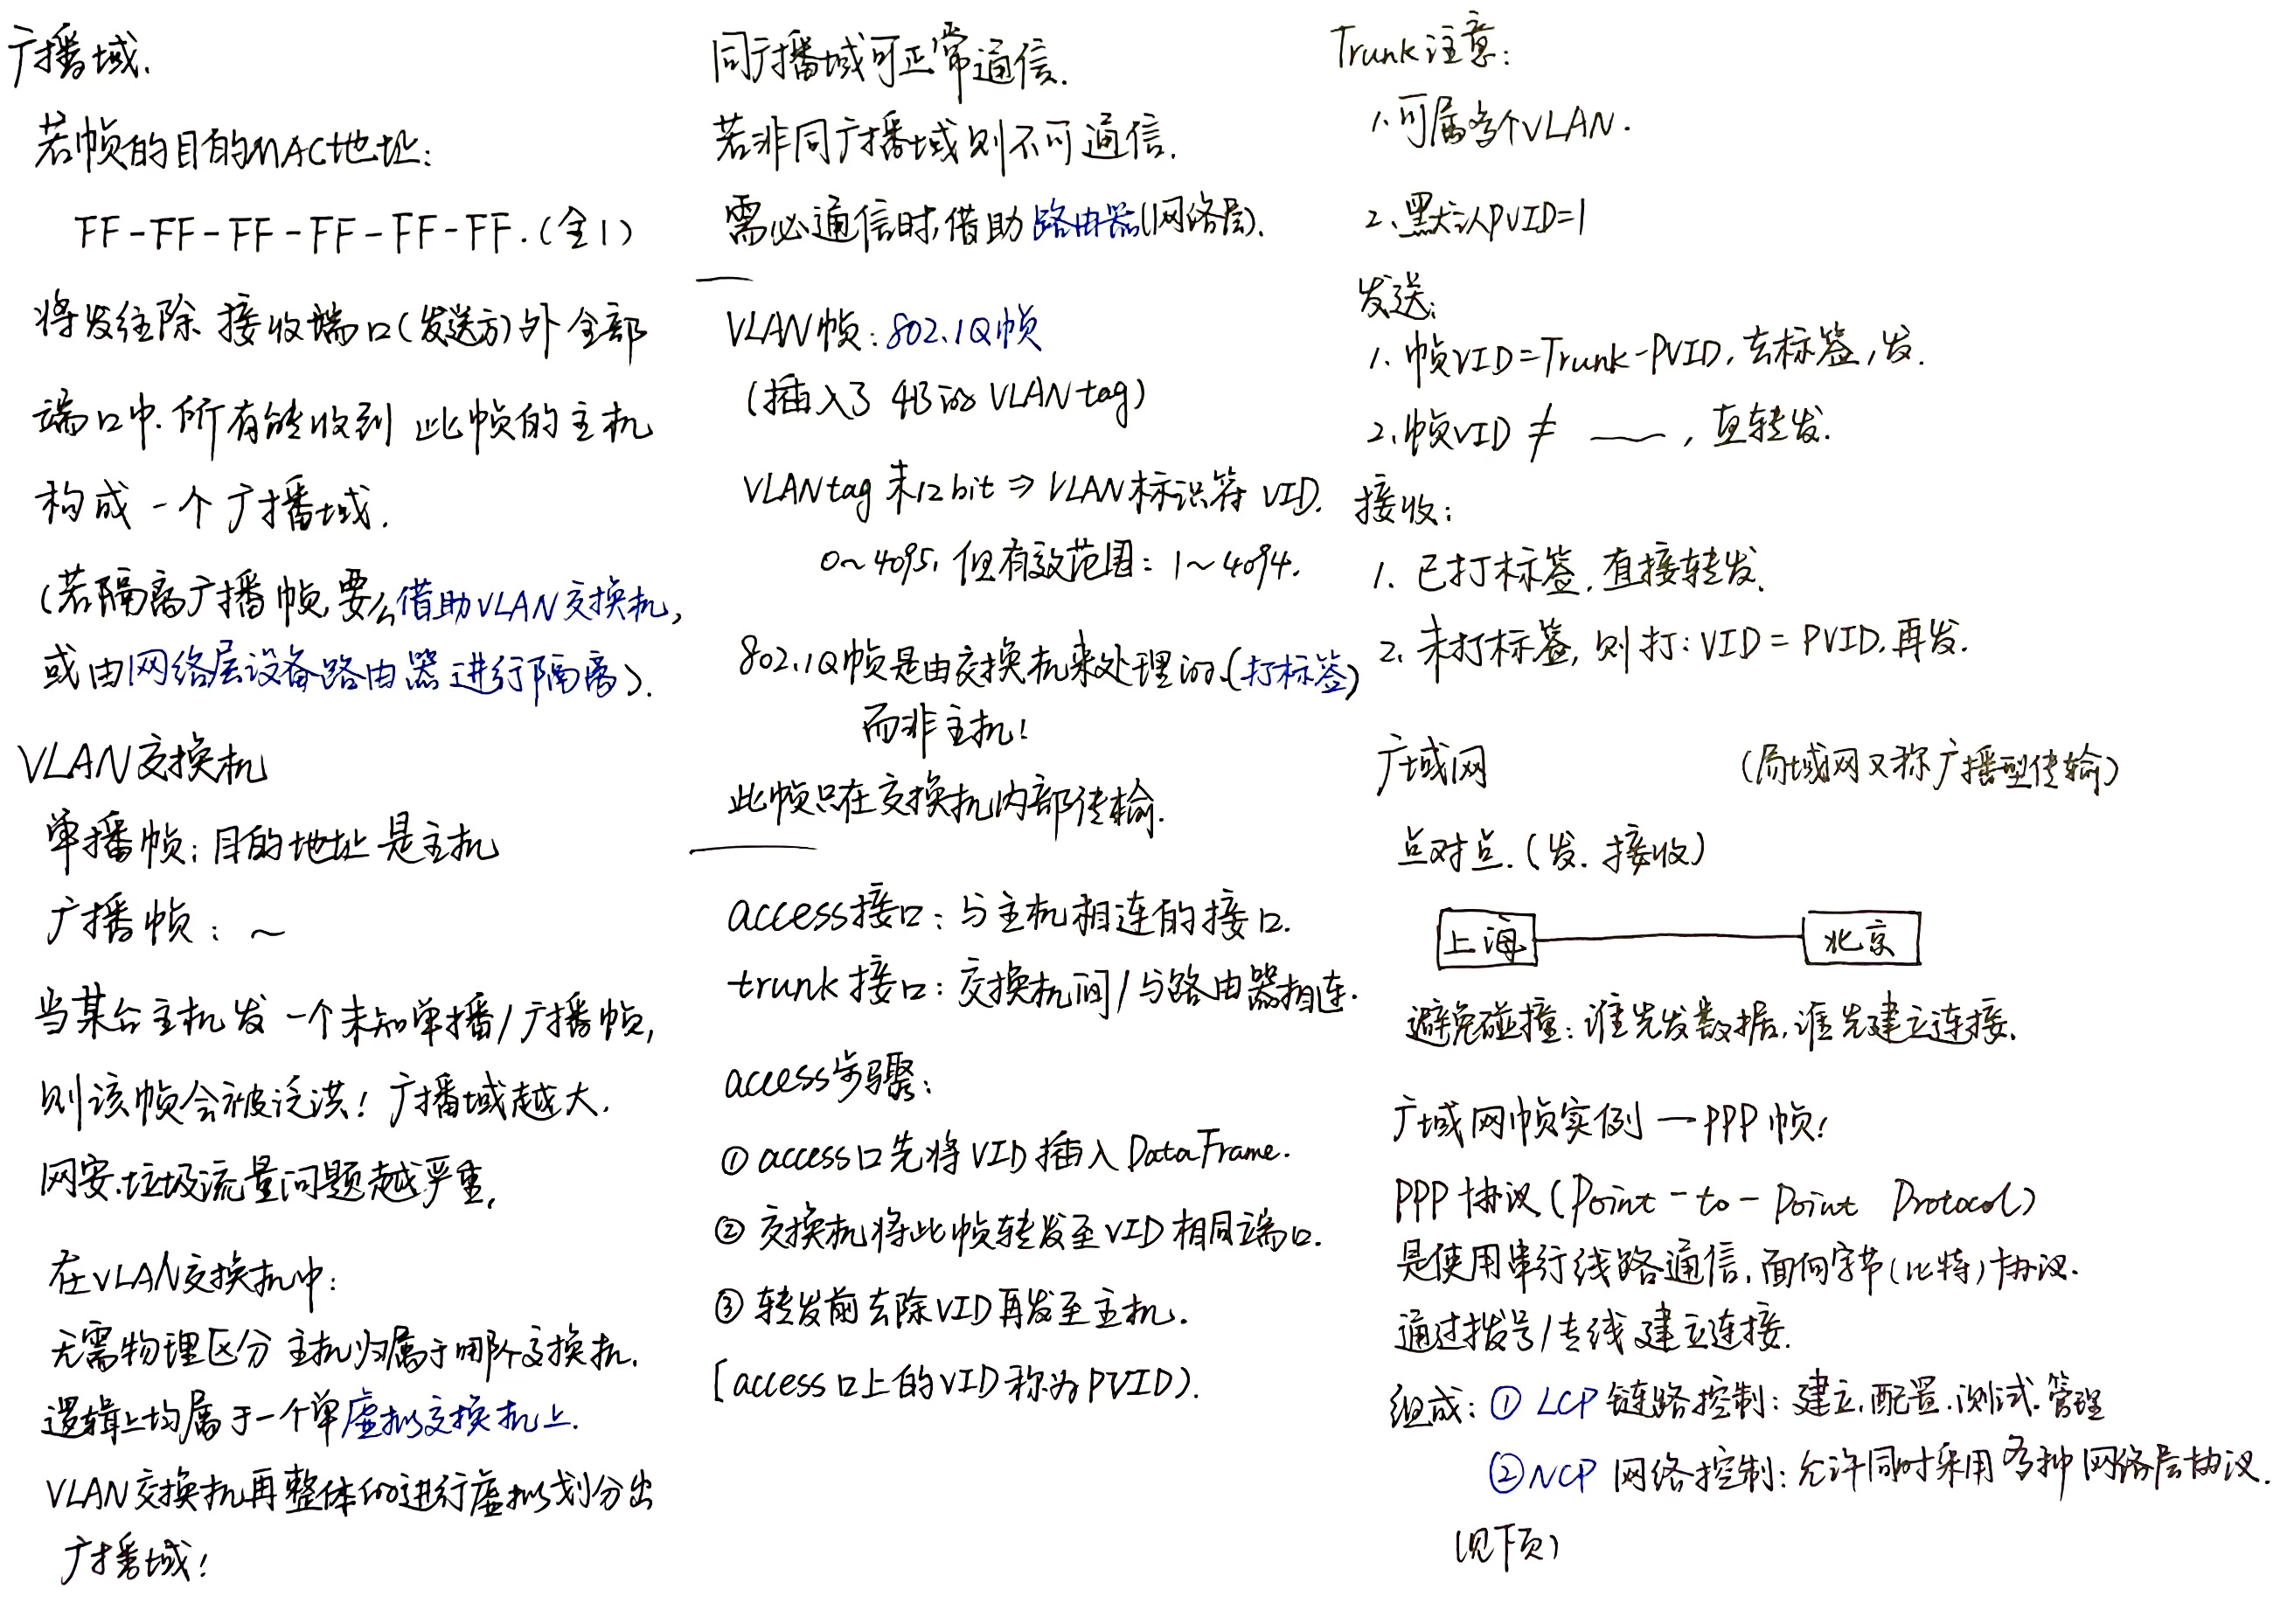 广播域.
若帧的目的MAC地址:
FF-FF-FF-FF-FF-FF.(全1)
将发往除 接收端口(发送方)外 全部
端口中.所有能收到 此帧的主机
构成 一个 广播域.
(若隔离广播帧,要么借助VLAN交换机,
或由网络层设备路由器进行隔离).
VLAN交换机
单播帧:目的地址是主机
广播帧:~
当某台主机发 一个未知单播/广播帧,
则该帧会被泛洪!广播域越大.
网安.垃圾流量问题越严重,
在VLAN交换机中:
无需物理区分 主机归属于哪个交换机.
逻辑上均属于一个单虚拟交换机上.
VLAN交换机再整体的进行虚拟划分出
广播域!
同广播域可正常通信.
若非同广播域则不可通信.
需必通信时,借助路由器(网络层).
VLAN帧:802.1Q帧
(插入了 4B的 VLAN tag)
VLAN tag 末12bit ⇒ VLAN标识符 VID.
0~4095, 但有效范围: 1~4094.
802.1Q帧是由交换机来处理的.(打标签)
而非主机!
此帧只在交换机内部传输.
access接口:与主机相连的接口.
trunk接口:交换机间/与路由器相连.
access步骤:
① access口先将VID插入DataFrame.
② 交换机将此帧转发至VID相同端口.
③ 转发前去除VID再发至主机.
[access口上的VID称为PVID).
Trunk注意:
1.可属多个VLAN.
2.默认PVID=1
发送:
1. 帧VID=Trunk-PVID,去标签,发.
2.帧VID ≠ ——, 直转发.
接收:
1. 已打标签,直接转发.
2. 未打标签,则打:VID = PVID.再发.
广域网 (局域网又称广播型传输)
点对点.(发.接收)
上海 北京
避免碰撞:谁先发数据,谁先建立连接.
广域网帧实例 — PPP帧!
PPP协议(Point-to-Point Protocol)
是使用串行线路通信,面向字节(比特)协议.
通过拨号/专线建立连接.
组成:① LCP 链路控制:建立.配置.测试.管理
②NCP 网络控制:允许同时采用多种网络层协议.
(见下页)